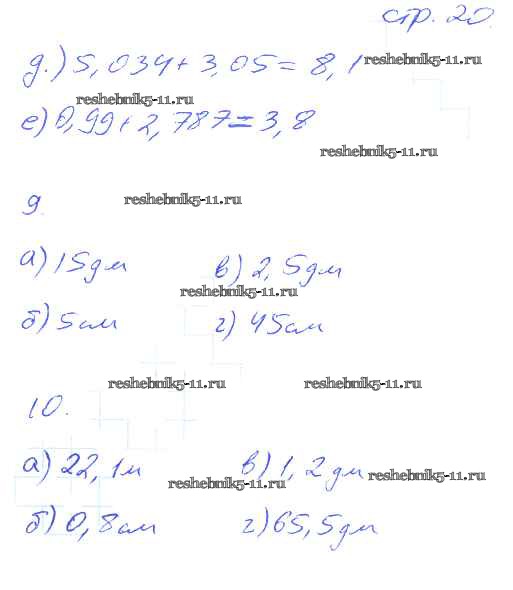 стр. 20.
д.) 5,034 + 3,05 = 8,1
reshebnik5-11.ru
reshebnik5-11.ru
е) 0,99 + 2,787 = 3,8
reshebnik5-11.ru
9.
reshebnik5-11.ru
а) 15 дм
в) 2,5 дм
reshebnik5-11.ru
б) 5 см
г) 45 см
reshebnik5-11.ru
reshebnik5-11.ru
10.
а) 22,1 м
в) 1,2 дм
reshebnik5-11.ru
reshebnik5-11.ru
б) 0,8 см
г) 65,5 дм